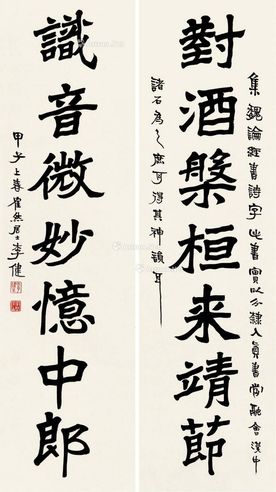 集魏論經書詩字此書實以分隸入真書當融會漢中
對酒槃桓来靖節
諸石為之庶可得其神韻耳
識音微妙憶中郎
甲子上春然居士李健